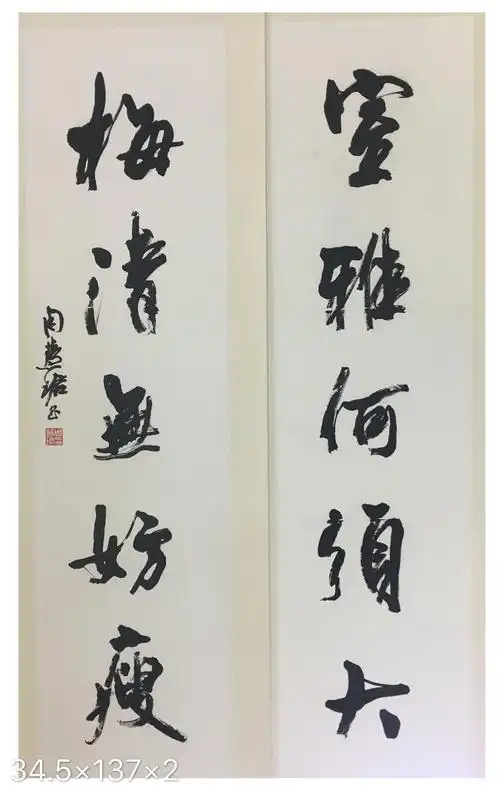 室雅何須大
梅清無妨瘦
周慧珺书
34.5×137×2